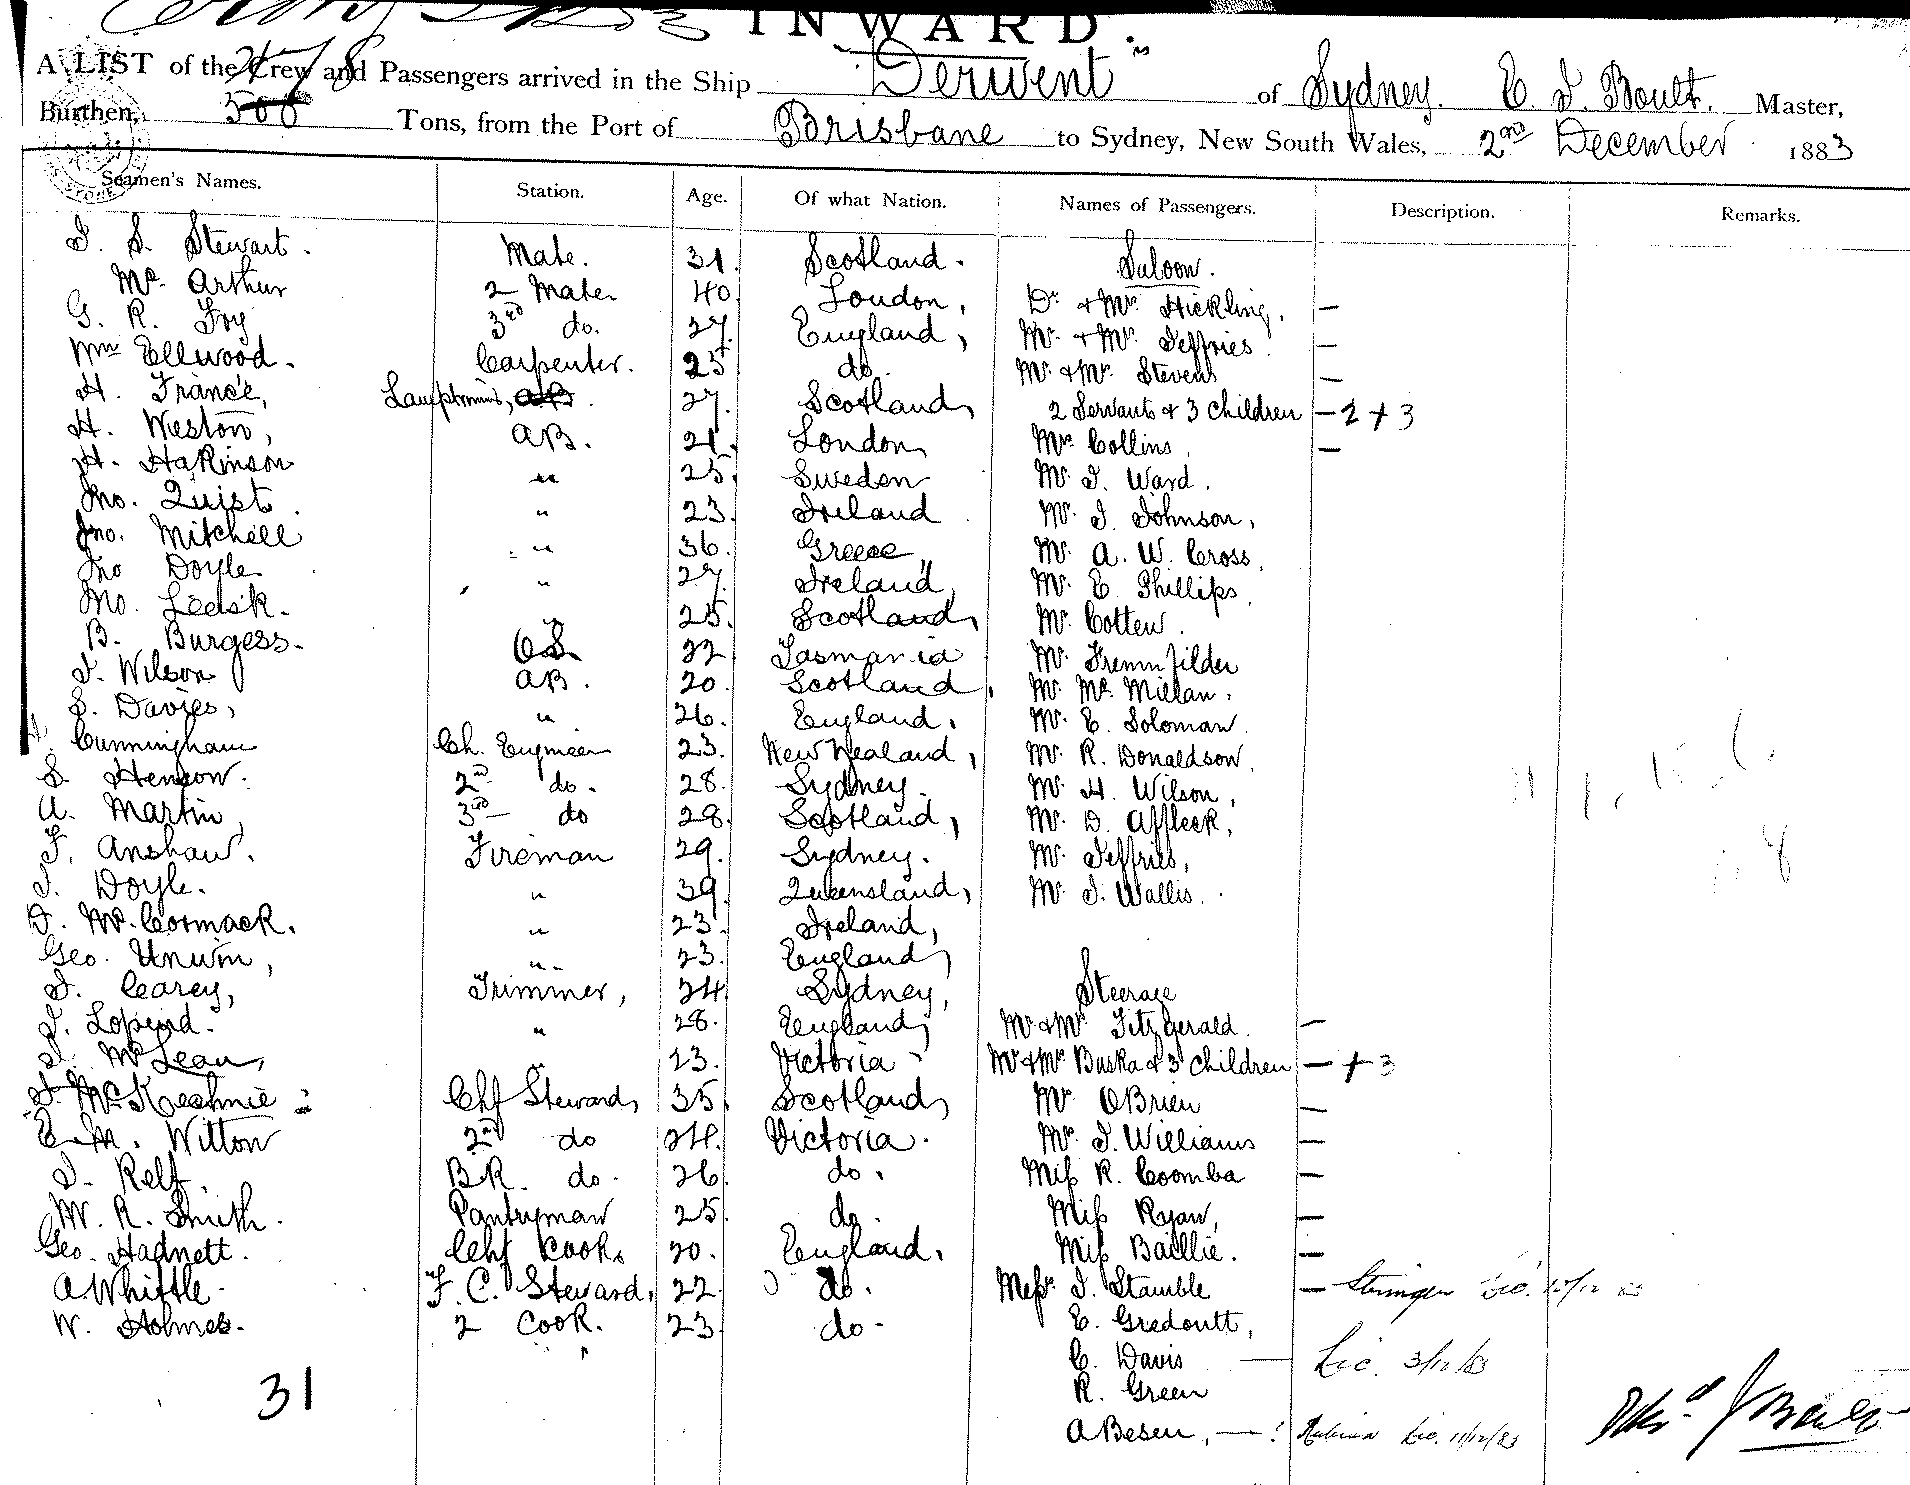 INWARD.
A LIST of the Crew and Passengers arrived in the Ship "Derwent" of Sydney. E. J. Boult. Master,
Burthen, 500 Tons, from the Port of Brisbane to Sydney, New South Wales, 2nd December 1883
Seamen's Names. Station. Age. Of what Nation. Names of Passengers. Description. Remarks.
J. S. Stewart. Mate. 31. Scotland. Saloon.
Mc Arthur 2 Mate 40 London, Dr & Mrs Hickling, —
G. R. Fry 3rd do. 27. England, Mr. & Mrs. Jeffries. —
Wm Ellwood. Carpenter. 25 do. Mr. & Mrs. Stevens —
H. France, Lamptrimmer, AB. 27. Scotland, 2 Servants & 3 Children — 2 + 3
H. Weston, AB. 21. London, Mrs Collins, —
H. Hakinson " 25. Sweden Mr. J. Ward.
Jno. Quist. " 23. Ireland Mr. J. Johnson,
Jno. Mitchell " 36. Greece, Mr. A. W. Cross,
Jno Doyle " 27. Ireland, Mr. E. Phillips,
Jno. Leask. 25. Scotland, Mr. Cotten.
B. Burgess. OS. 22 Tasmania Mr.
J. Wilson AB. 20. Scotland, Mr. Mc Millan.
S. Davies, " 26. England. Mr. E. Soloman
Cunningham Ch. Engineer 23. New Zealand, Mr. R. Donaldson,
S. Henson. 2nd do. 28. Sydney. Mr. H. Wilson,
A. Martin, 3rd do 28. Scotland, Mr. D. Affleck,
F. Anshaw. Fireman 29. Sydney. Mr. Jeffries,
J. Doyle. " 39. Queensland, Mr. J. Wallis.
D. McCormack. " 23. Ireland,
Geo. Unwin, " 23. England,
J. Carey, Trimmer, 24 Sydney, Steerage
J. " 28. England, Mr & Mrs Fitzgerald. —
J. McLean, " 23. Victoria Mr & Mrs Buska & 3 Children — + 3
J. McKechnie Chf Steward, 35. Scotland, Mr OBrien —
E. M. Witton 2nd do 24. Victoria. Mr. J. Williams —
J. Relf. BR. do. 26. do. Miss R. Coomba —
W. R. Smith. Pantryman 25. do. Miss Ryan, —
Geo. Hadnett. Chf Cook. 20. England. Miss Baillie. —
A Whittle. F. C. Steward, 22. do. Messrs. J. Stamble —
W. Holmes. 2 Cook. 23. do. E. Gredoutt,
C. Davis — Lic. 3/12/83
31 R. Green
A Besen, — Lic. 11/12/83